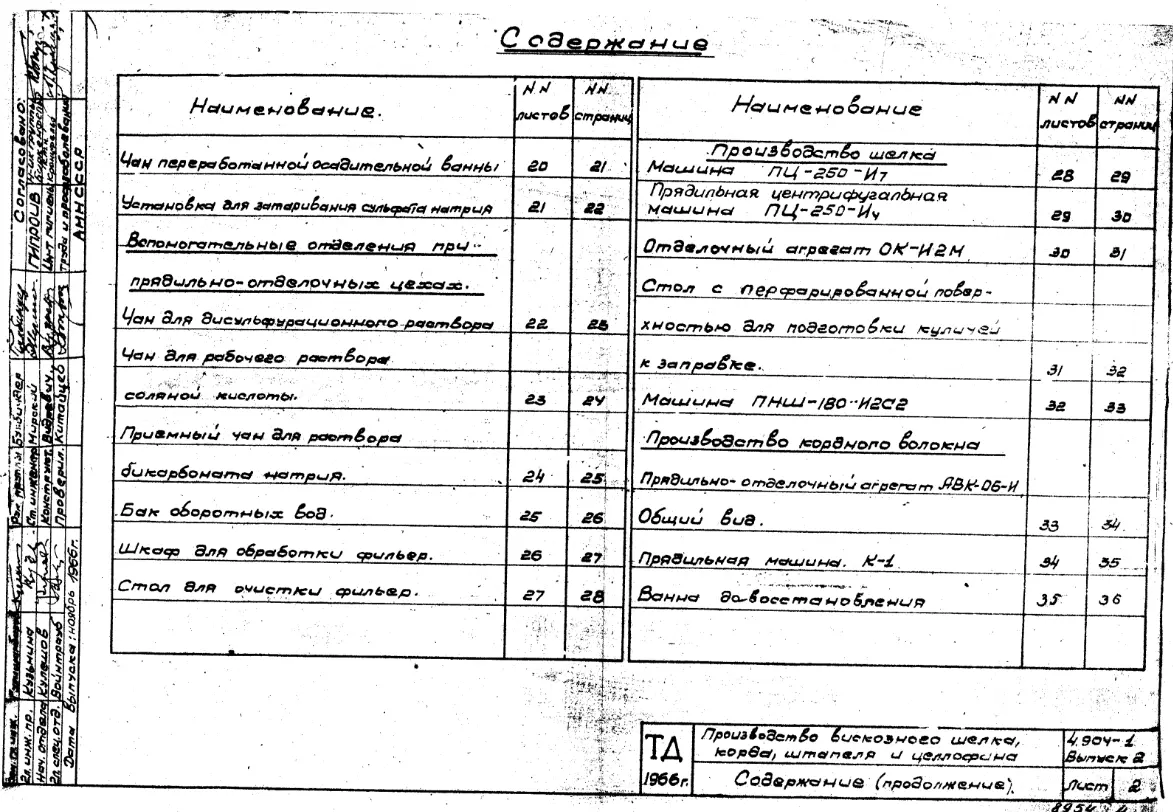 Содержание
Наименование.
NN листов
NN страниц
Чан переработанной осадительной ванны 20 21
Установка для затаривания сульфата натрия 21 22
Вспомогательные отделения при
прядильно-отделочных цехах.
Чан для дисульфурационного раствора 22 23
Чан для рабочего раствора
соляной кислоты. 23 24
Приемный чан для раствора
бикарбоната натрия. 24 25
Бак оборотных вод. 25 26
Шкаф для обработки фильер. 26 27
Стол для очистки фильер. 27 28
Наименование
NN листов
NN страниц
Производство шелка
Машина ПЦ-250-И7 28 29
Прядильная центрифугальная
машина ПЦ-250-И4 29 30
Отделочный агрегат ОК-И2М 30 31
Стол с перфарированной повер-
хностью для подготовки куличей
к заправке. 31 32
Машина ПНШ-180-И2С2 32 33
Производство кордного волокна
Прядильно-отделочный агрегат АВК-06-И
Общий вид. 33 34
Прядильная машина. К-1 34 35
Ванна довосстановления 35 36
Согласовано:
ГИПРОИВ
Ин-т гигиены
труда и профзаболеваний
АМН СССР
Бунбиндер
Ст. инженер Мирский
Проверил. Китайцев
Гл. инж. пр. Кузьмина
Нач. отдела Кулешов
Гл. спец. отд. Войнтрауб
Дата выпуска: ноябрь 1966г.
ТД
1966г.
Производство вискозного шелка,
корда, штапеля и целлофана
Содержание (продолжение).
4.904-1
Выпуск 2
Лист 2
8954 4